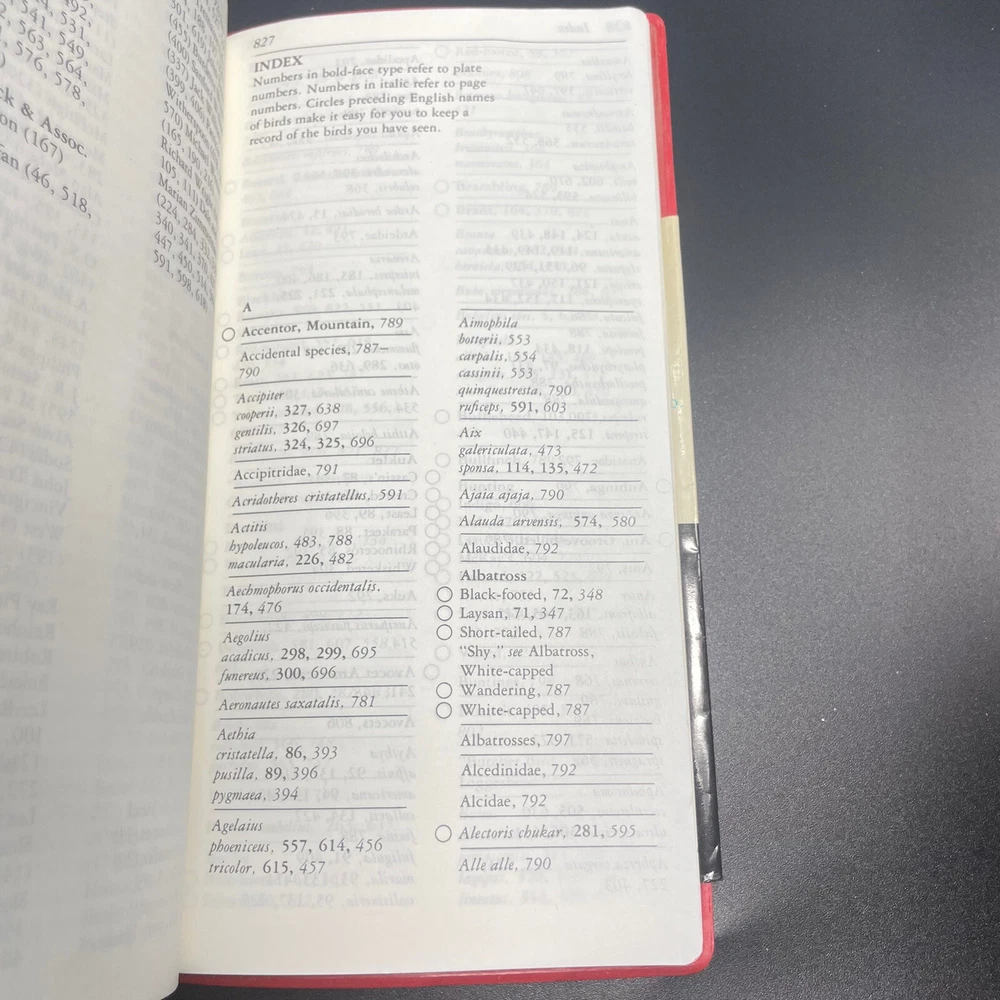 492,
531,
541, 549,
563, 564,
576, 578,
ck & Assoc.
on (167)
an (46, 518,
827
INDEX
Numbers in bold-face type refer to plate
numbers. Numbers in italic refer to page
numbers. Circles preceding English names
of birds make it easy for you to keep a
record of the birds you have seen.
A
Accentor, Mountain, 789
Accidental species, 787–
790
Accipiter
cooperii, 327, 638
gentilis, 326, 697
striatus, 324, 325, 696
Accipitridae, 791
Acridotheres cristatellus, 591
Actitis
hypoleucos, 483, 788
macularia, 226, 482
Aechmophorus occidentalis,
174, 476
Aegolius
acadicus, 298, 299, 695
funereus, 300, 696
Aeronautes saxatalis, 781
Aethia
cristatella, 86, 393
pusilla, 89, 396
pygmaea, 394
Agelaius
phoeniceus, 557, 614, 456
tricolor, 615, 457
Aimophila
botterii, 553
carpalis, 554
cassinii, 553
quinquestresta, 790
ruficeps, 591, 603
Aix
galericulata, 473
sponsa, 114, 135, 472
Ajaia ajaja, 790
Alauda arvensis, 574, 580
Alaudidae, 792
Albatross
Black-footed, 72, 348
Laysan, 71, 347
Short-tailed, 787
"Shy," see Albatross,
White-capped
Wandering, 787
White-capped, 787
Albatrosses, 797
Alcedinidae, 792
Alcidae, 792
Alectoris chukar, 281, 595
Alle alle, 790